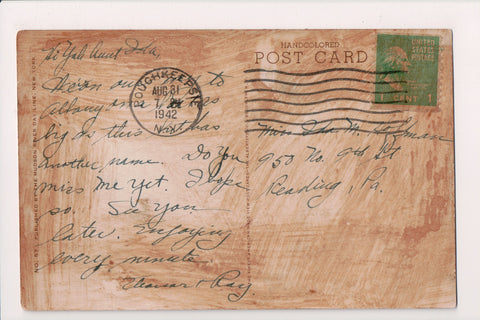 Hi Ya'll Aunt Ida,
We're on our way to
Albany and
by us, this boat has
another name. Do you
miss me yet. I hope
so. See you
later. Enjoying
every minute.
Eleanor + Ray
HANDCOLORED
POST CARD
POUGHKEEPSIE
AUG 31
1942
N.Y.
UNITED
STATES
POSTAGE
1 CENT 1
Miss Ida M.
950 No. 9th St
Reading, Pa.
PUBLISHED BY THE HUDSON RIVER DAY LINE, NEW YORK